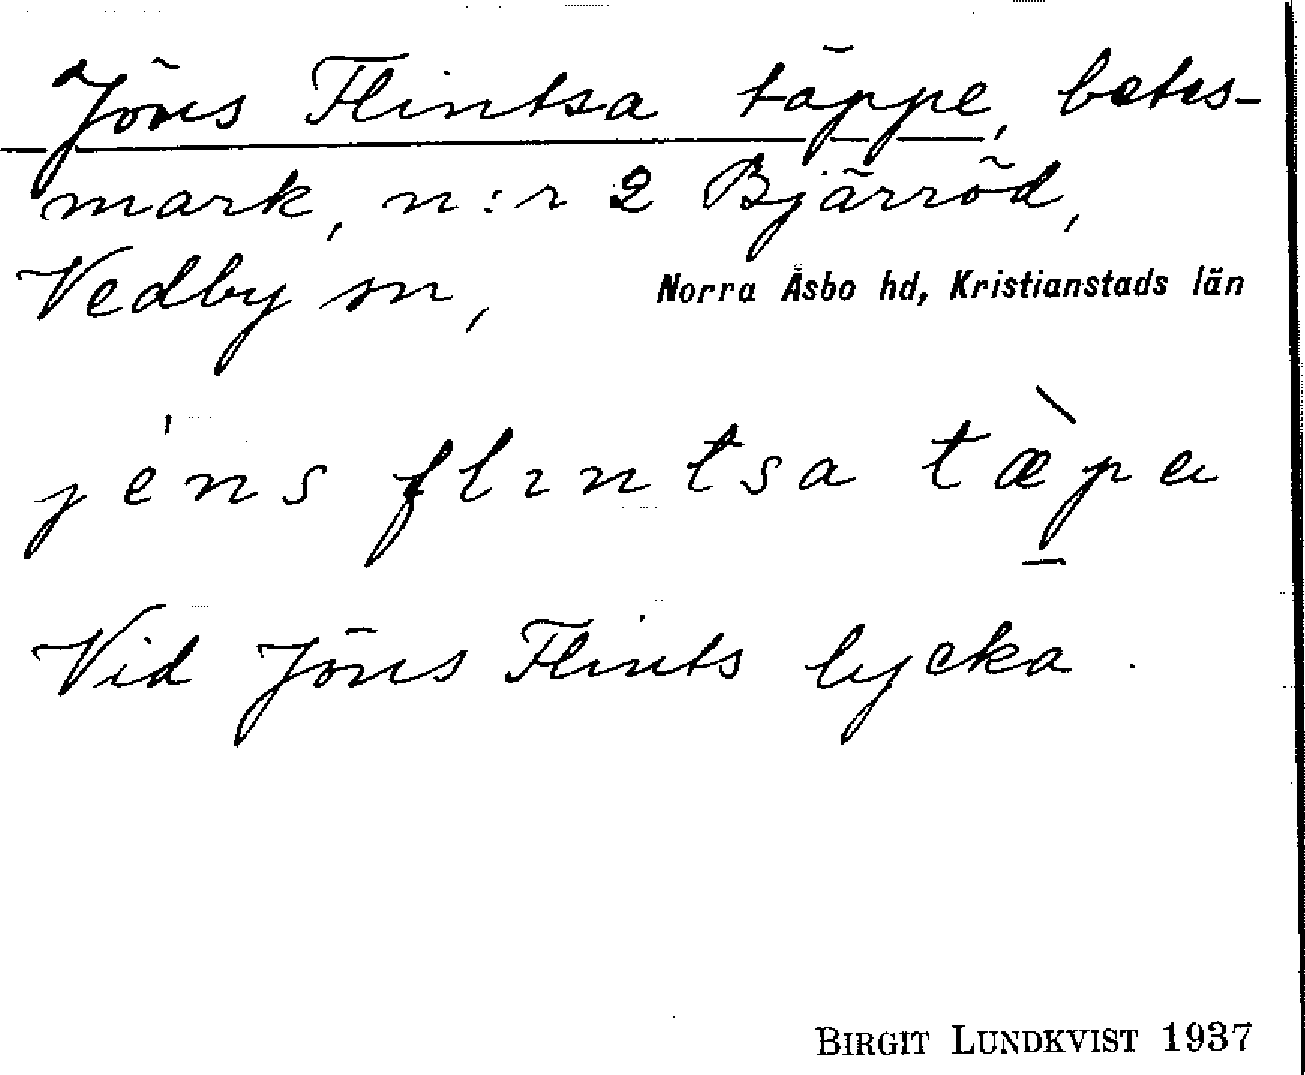 Jöns Flintsa täppe, betes-
mark, n:r 2 Bjärröd,
Vedby sn, Norra Åsbo hd, Kristianstads län
jéns flıntsa tæ̀pa
Vid Jöns Flints lycka.
BIRGIT LUNDKVIST 1937